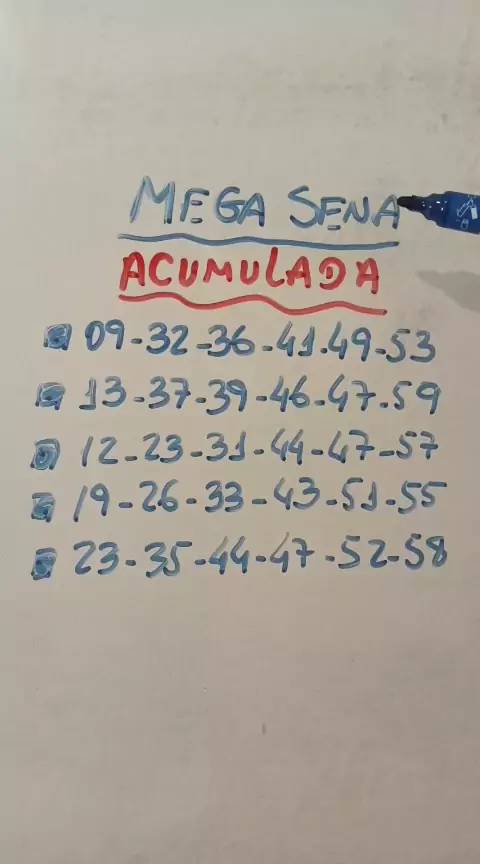 MEGA SENA
ACUMULADA
09-32-36-41-49-53
13-37-39-46-47-59
12-23-31-44-47-57
19-26-33-43-51-55
23-35-44-47-52-58